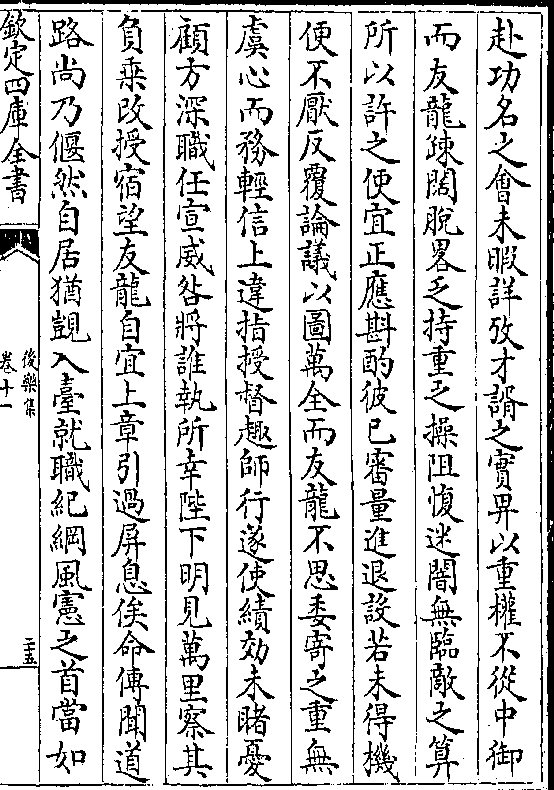 赴功名之會未暇詳攷才諝之實畀以重權不從中御
而友龍踈闊脫畧乏持重之操阻愎迷闇無臨敵之算
所以許之便宜正應斟酌彼已審量進退設若未得機
便不厭反覆論議以圖萬全而友龍不思委寄之重無
虞心而務輕信上違指授督趣師行遂使績効未睹憂
顧方深職任宣威咎將誰執所幸陛下明見萬里察其
負乗改授宿望友龍自宜上章引過屏息俟命傳聞道
路尚乃偃然自居猶覬入臺就職紀綱風憲之首當如
欽定四庫全書
後樂集
卷十一
二五